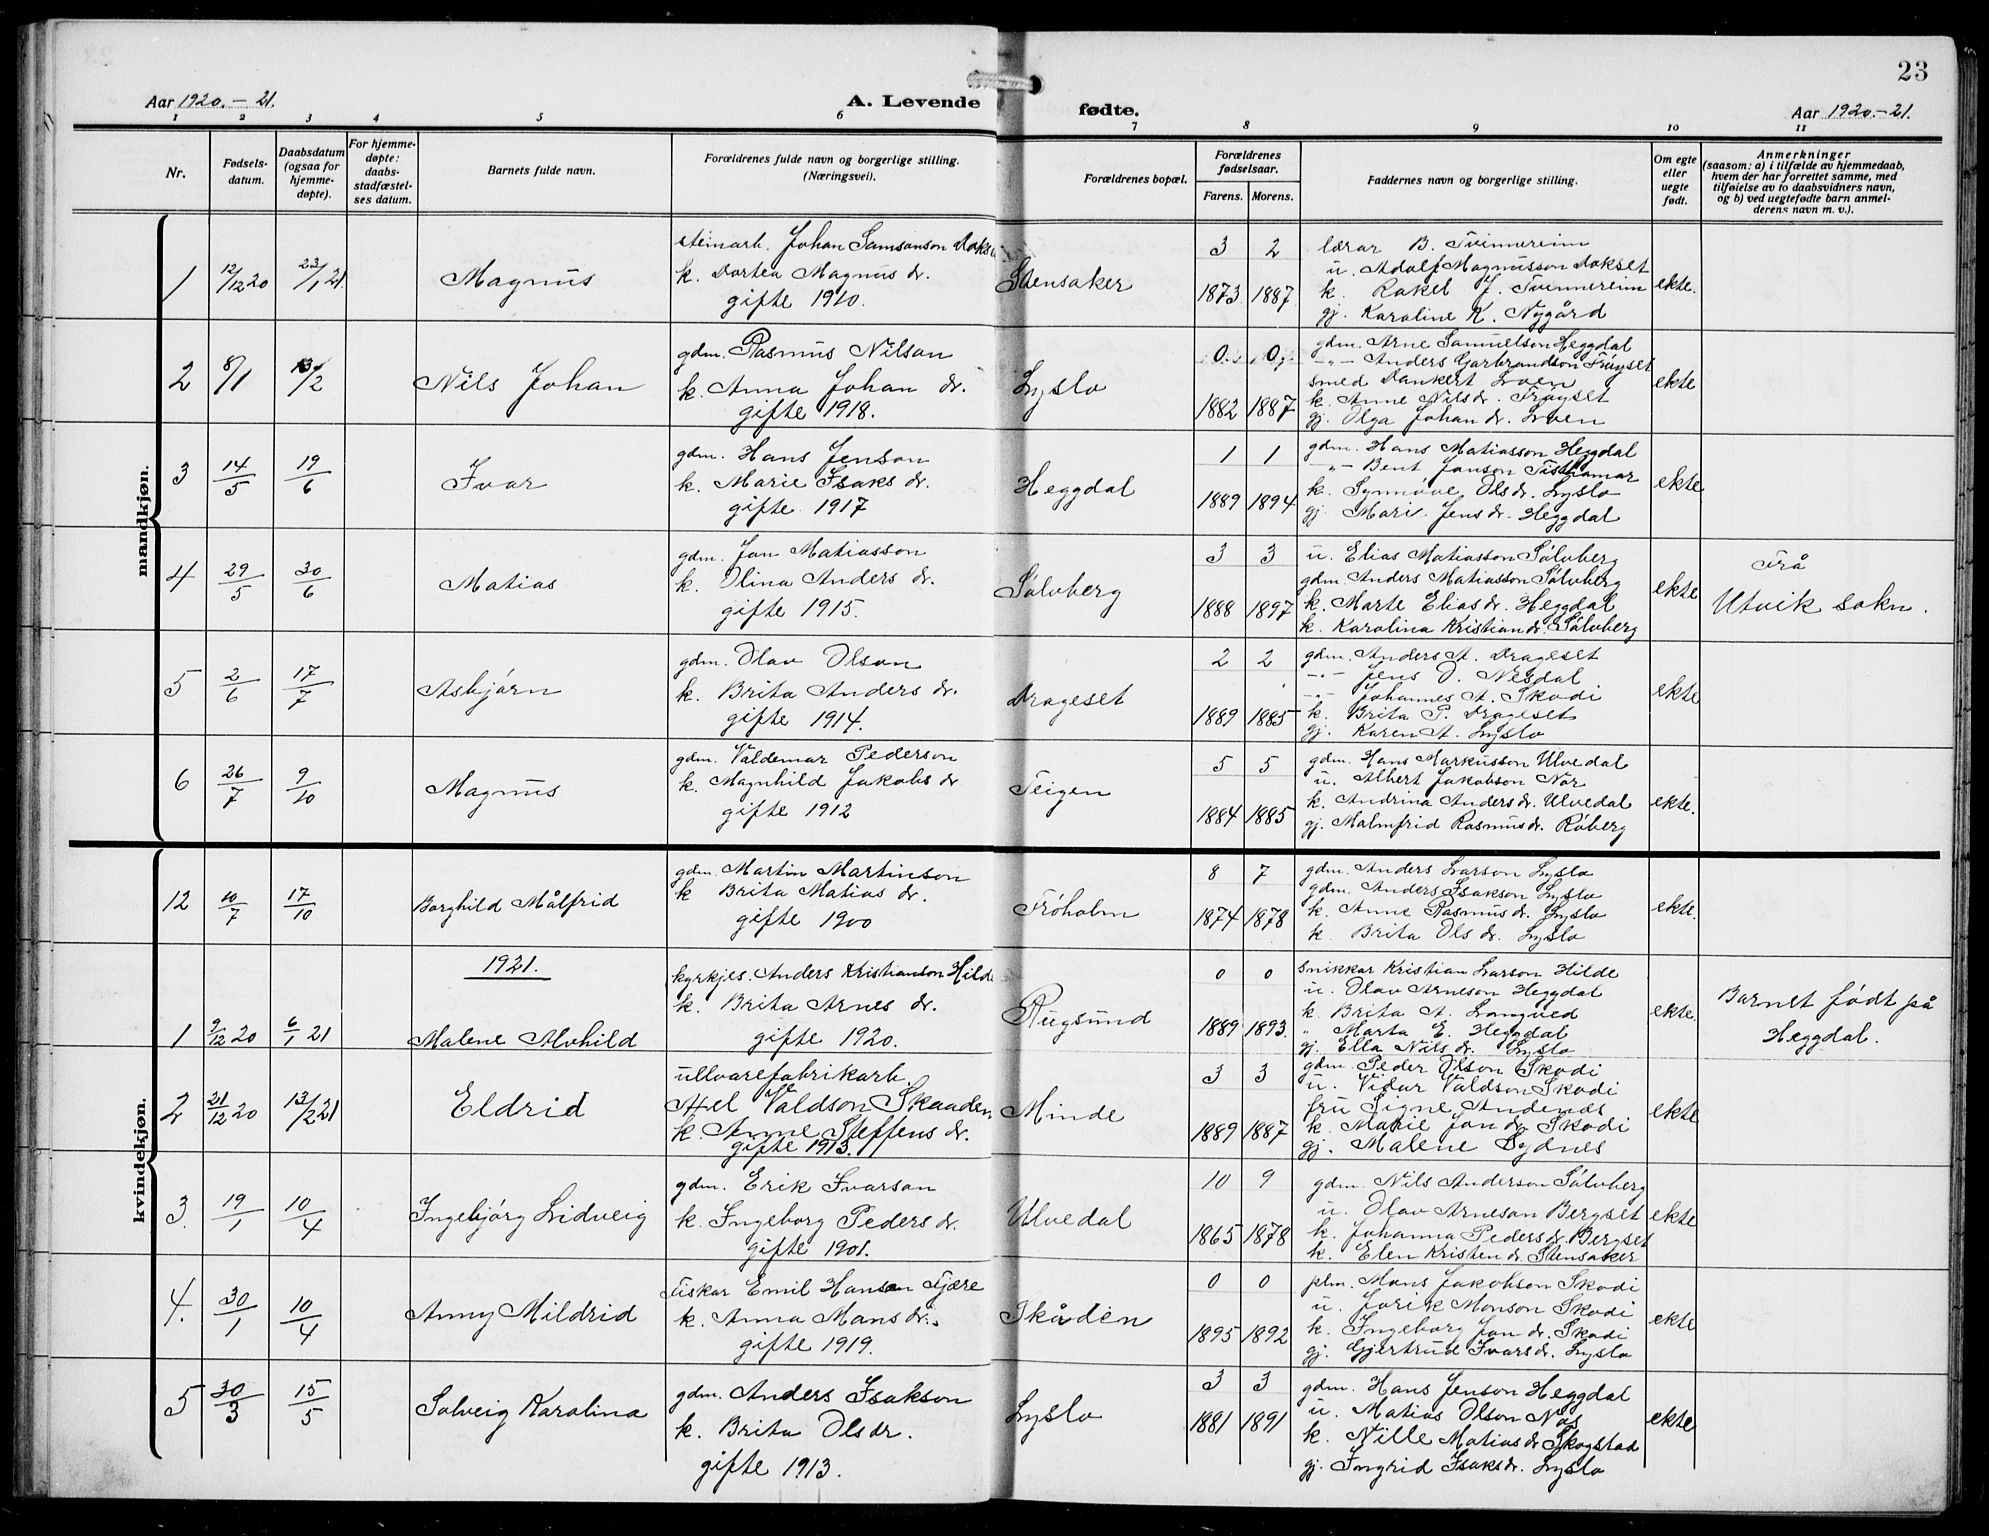 23
Aar 1920.-21. A. Levende fødte. Aar 1920.-21.
1 2 3 4 5 6 7 8 9 10 11
Nr. Fødsels-datum. Daabsdatum (ogsaa for hjemme-døpte). For hjemme-døpte: daabs-stadfæstel-ses datum. Barnets fulde navn. Forældrenes fulde navn og borgerlige stilling. (Næringsvei). Forældrenes bopæl. Forældrenes fødselsaar. Farens. Morens. Faddernes navn og borgerlige stilling. Om egte eller uegte født. Anmerkninger (saasom: a) i tilfælde av hjemmedaab, hvem der har forrettet samme, med tilføielse av to daabsvidners navn, og b) ved uegtefødte barn anmel-derens navn m. v.).
mandkjøn.
1 12/12 20 23/1 21 Magnus
steinarb. Johan Samsonson
k. Dortea Magnus dr.
gifte 1910.
Stensaker
3 2
1873 1887
lærar B. Tvinnereim
u. Adolf Magnusson Dokset
k. Rakel J. Tvinnereim
gj. Karoline K. Nygård
ekte.
2 8/1 13/2 Nils Johan
gdm. Rasmus Nilson
k. Anna Johan dr.
gifte 1918.
Lyslo
0 0
1882 1887
gdm. Arne Samuelson Heggdal
-"- Anders Garbrandson Frøyset
smed Dankert Loen
k. Anne Nilsdr. Frøyset
gj. Olga Johan dr. Loen
ekte
3 14/5 19/6 Ivar
gdm. Hans Jenson
k. Marie Isaks dr.
gifte 1917
Heggdal
1 1
1889 1894
gdm. Hans Matiasson Heggdal
-"- Bent Janson Tisthamar
k. Synnøve Ols dr. Lyslo
gj. Mari Jens dr. Heggdal
ekte
4 29/5 30/6 Matias
gdm. Jon Matiasson
k. Olina Anders dr.
gifte 1915.
Sølvberg
3 3
1888 1897
u. Elias Matiasson Sølvberg
gdm. Anders Matiasson Sølvberg
k. Marte Elias dr. Heggdal
k. Karolina Kristian dr. Sølvberg
ekte
Frå
Utvik sokn.
5 2/6 17/7 Asbjørn
gdm. Olav Olson
k. Brita Anders dr.
gifte 1914.
Drageset
2 2
1889 1885
gdm. Anders A. Drageset
-"- Jens O. Nesdal
-"- Johannes A. Skodi
k. Brita P. Drageset
gj. Karen A. Lyslo
ekte
6 26/7 9/10 Magnus
gdm. Valdemar Pederson
k. Magnhild Jakobs dr
gifte 1912
Teigen
5 5
1884 1885
gdm. Hans Markusson Ulvedal
u. Albert Jakobson Nor
k. Andrina Anders dr. Ulvedal
gj. Malmfrid Rasmus dr. Røberg
ekte.
kvindekjøn.
12 10/7 17/10 Borghild Målfrid
gdm. Martin Martinson
k Brita Matias dr.
gifte 1900
Frøholm
8 7
1874 1878
gdm. Anders Larson Lyslo
gdm. Anders Isakson Lyslo
k. Anne Rasmus dr. Lyslo
k. Brita Ols dr. Lyslo
ekte.
1921.
1 9/12 20 6/1 21 Malene Alvhild
kyrkjes. Anders Kristianson Hilde
k. Brita Arnes dr.
gifte 1920.
Rugsund
0 0
1889 1893.
snikkar Kristian Larson Hilde
u. Olav Arneson Heggdal
k. Brita A. Longved
" Marta E. Heggdal
gj. Ella Nils dr. Lyslo
ekte.
Barnet født på
Heggdal.
2 21/12 20 13/2 21 Eldrid
ullvarefabrikarb.
Axel Valdson Skaaden
k. Anne Steffens dr.
gifte 1913.
Minde
3 3
1889 1887
gdm. Peder Olson Skodi
u. Vidar Valdson Skodi
fru Signe Andenæs
k. Marie Jon dr. Skodi
gj. Malene Sydnes
ekte
3. 19/1 10/4 Ingebjørg Lidveig
gdm. Erik Ivarson
k. Ingeborg Peders dr.
gifte 1901.
Ulvedal
10 9
1865 1878
gdm. Nils Anderson Sølvberg
u. Olav Arneson Bergset
k. Johanna Peders dr. Bergset
k. Elen Kristen dr. Stensaker
ekte
4. 30/1 10/4 Anny Mildrid
Fiskar Emil Hanson Fjære
k. Anna Mons dr.
gifte 1919.
Skåden
0 0
1895 1892
plm. Mons Jakobson Skodi
u. Jorik Monson Skodi
k. Ingeborg Jon dr. Skodi
gj. Gjertrud Ivars dr. Lyslo
ekte
5 30/3 15/5 Solveig Karolina
gdm. Anders Isakson
k. Brita Ols dr.
gifte 1913.
Lyslo
3 3
1881 1891
gdm. Hans Jenson Heggdal
u. Matias Olson Nos
k. Nille Matias dr Skogstad
gj. Ingrid Isaks dr. Lyslo
ekte